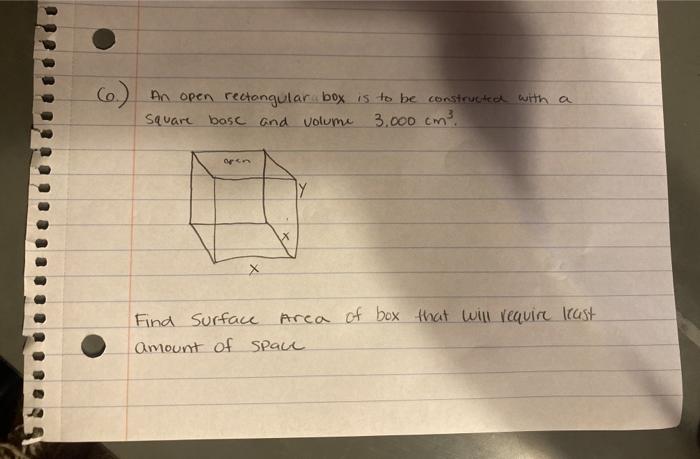 6.) An open rectangular box is to be constructed with a
square base and volume 3,000 cm³.
open
y
x
x
Find Surface Area of box that will require least
amount of space